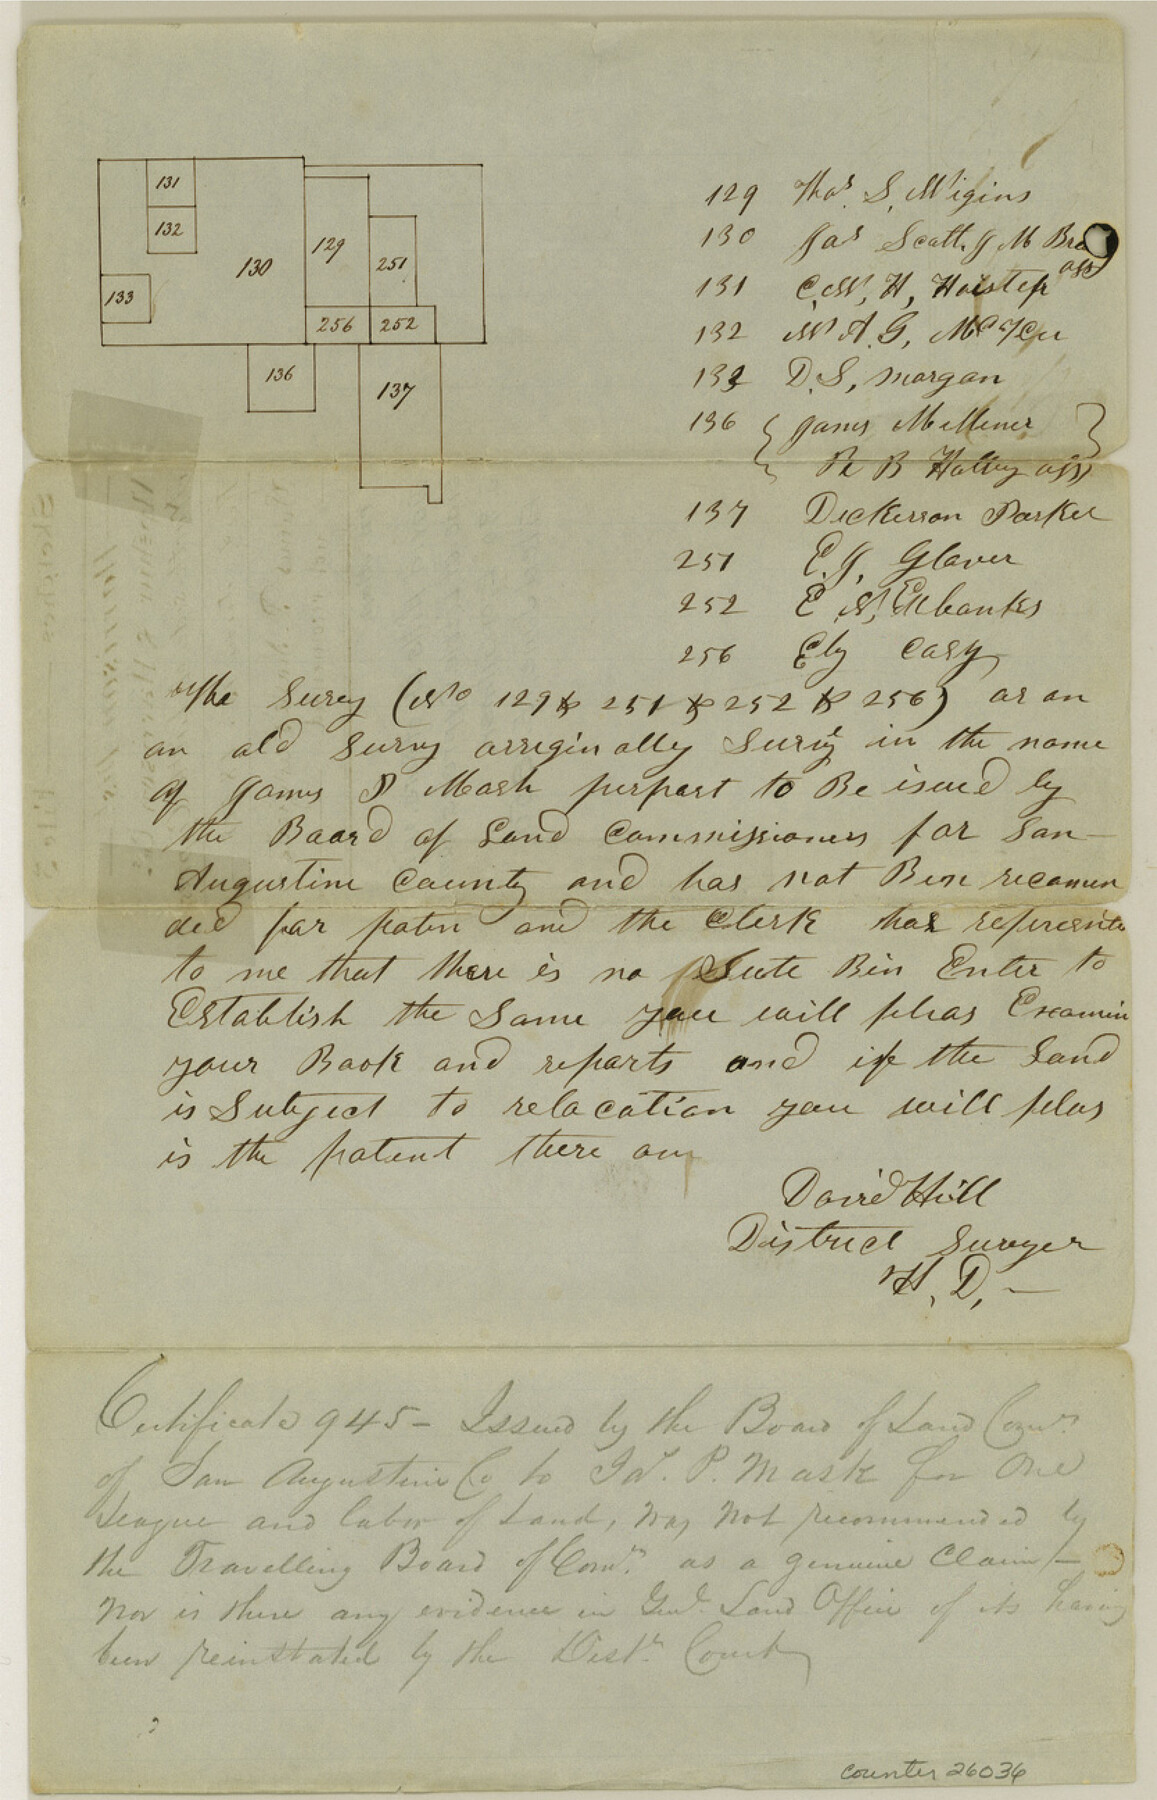 131
132
133
130
129
251
256
252
136
137
129 Thos. S. Wigins
130 Jas Scatt. J M Bra
ass
131 C. W. H,
132 W A. G, McFee
133 D. S, Morgan
136 James
R B ass
137 Dickerson Parker
251 E. J, Glover
252 E N, Eubanks
256 Ely Casy
The Survy (No 129 & 251 & 252 & 256) as an
an old Survy orriginolly Survy in the name
of James P Mash purpart to Be isued by
the Baard of Land Commissioners for San
Augustine County and has not Ben recomen
ded far paten and the Clerk has represente
to me that there is no Sute Bin Enter to
Establish the Same you will pleas Examin
your Book and reparts and if the Land
is Subject to relocation you will pleas
is the patent there on
David Hill
District Survyer
H. D,
Certificate 945 - Issued by the Board of Land Comrs.
of San Augustine Co to Jas. P. Mask for One
League and labor of Land, was not recommended by
the Travelling Board of Comrs. as a genuine Claim -
nor is there any evidence in Genl. Land Office of its having
been reinstated by the Distr. Court
counter 26036